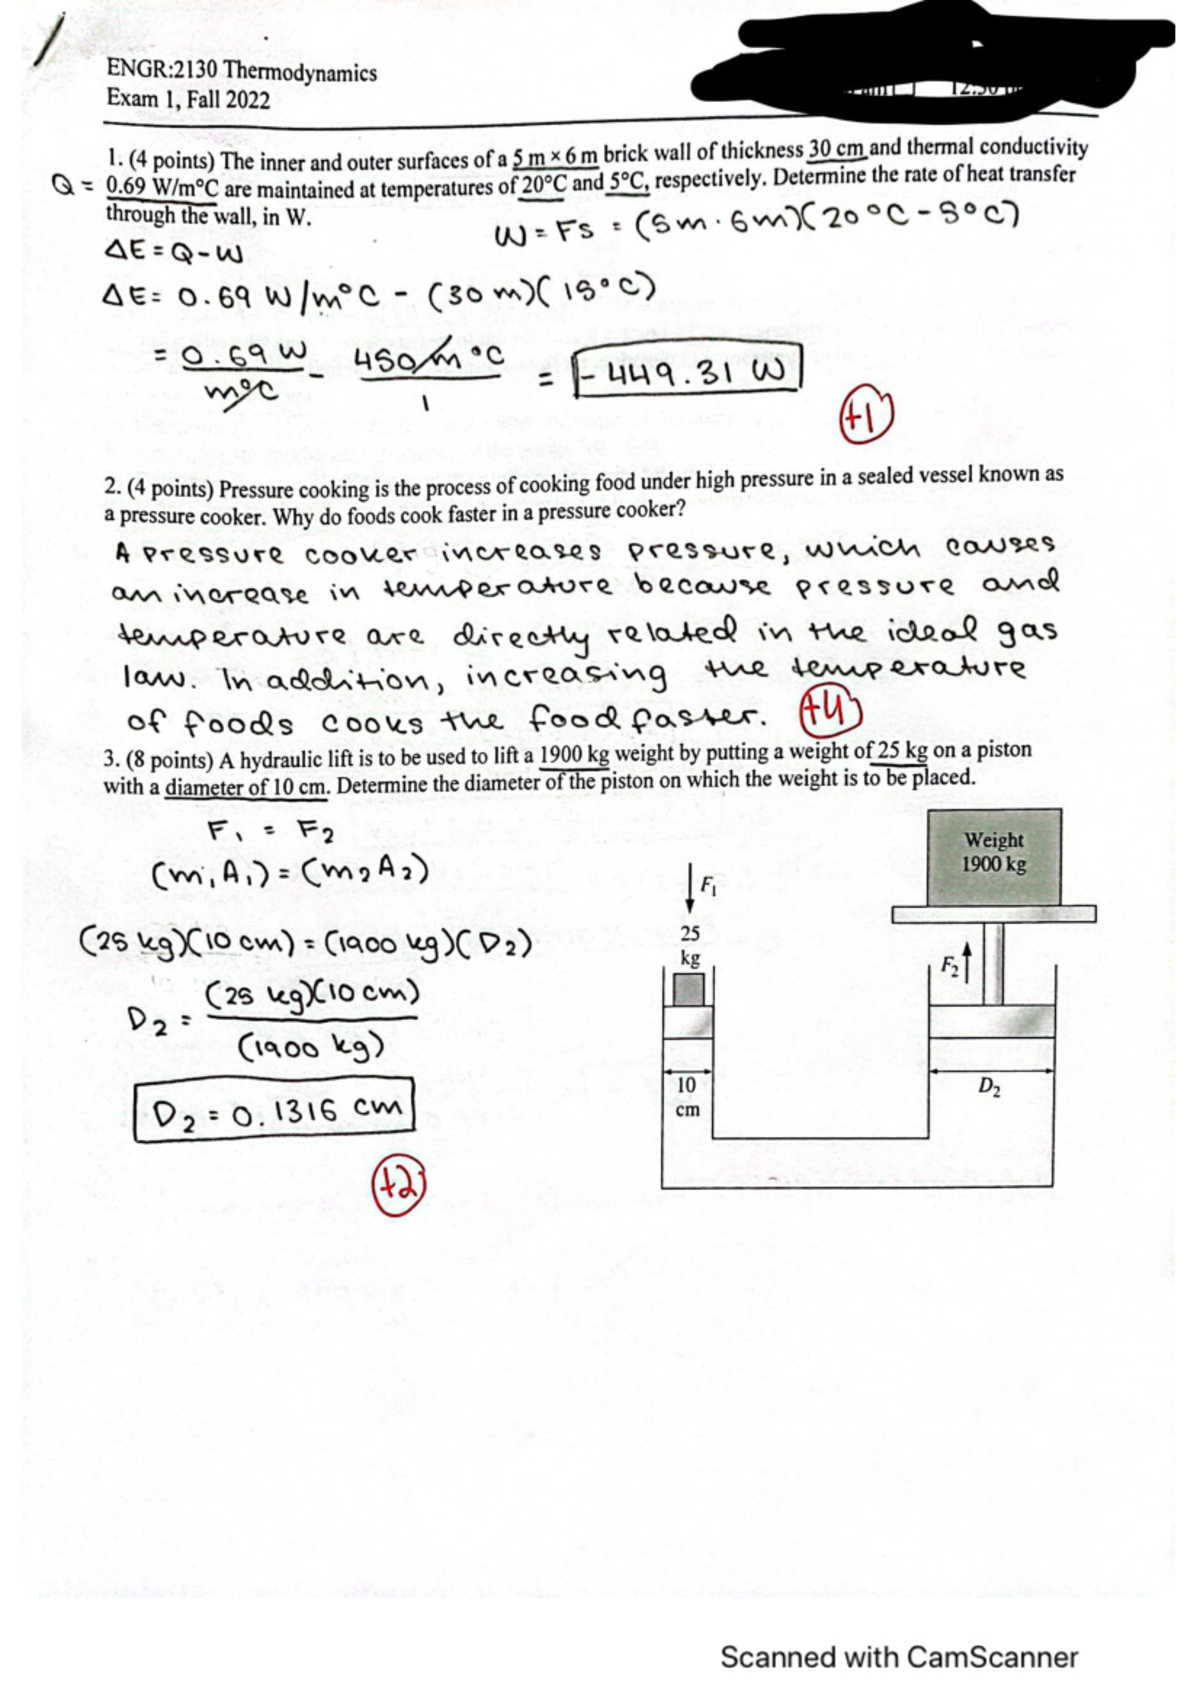 ENGR:2130 Thermodynamics
Exam 1, Fall 2022
1. (4 points) The inner and outer surfaces of a 5 m × 6 m brick wall of thickness 30 cm and thermal conductivity
Q = 0.69 W/m°C are maintained at temperatures of 20°C and 5°C, respectively. Determine the rate of heat transfer
through the wall, in W.
W = Fs = (5m · 6m)(20°C - 5°C)
ΔE = Q - W
ΔE = 0.69 W/m°C - (30 m)(15°C)
= 0.69 W / m°C - 450 m°C / 1 = - 449.31 W
+1
2. (4 points) Pressure cooking is the process of cooking food under high pressure in a sealed vessel known as
a pressure cooker. Why do foods cook faster in a pressure cooker?
A pressure cooker increases pressure, which causes
an increase in temperature because pressure and
temperature are directly related in the ideal gas
law. In addition, increasing the temperature
of foods cooks the food faster. +4
3. (8 points) A hydraulic lift is to be used to lift a 1900 kg weight by putting a weight of 25 kg on a piston
with a diameter of 10 cm. Determine the diameter of the piston on which the weight is to be placed.
F₁ = F₂
(m₁A₁) = (m₂A₂)
(25 kg)(10 cm) = (1900 kg)(D₂)
D₂ = (25 kg)(10 cm)
(1900 kg)
D₂ = 0.1316 cm
+2
Weight
1900 kg
F₁
25
kg
F₂
10
cm
D₂
Scanned with CamScanner